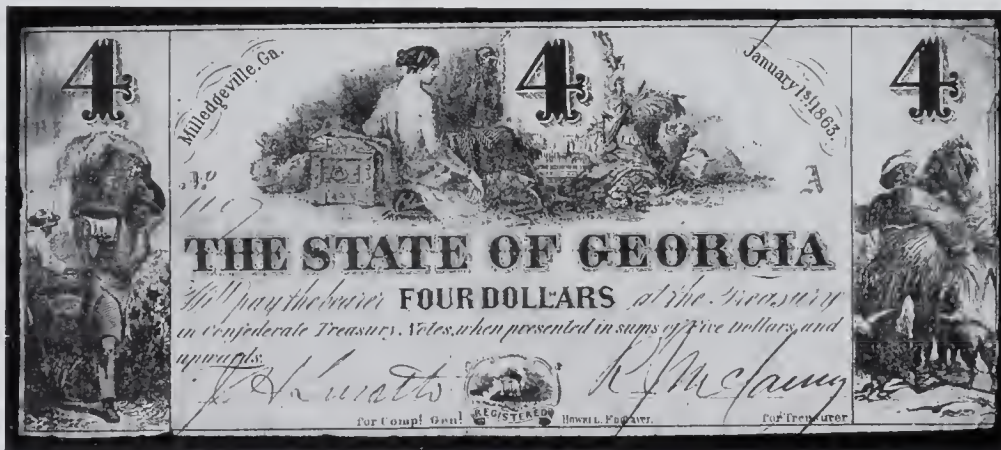 4 4 4
Milledgeville, Ga. January 1st 1863.
No A
THE STATE OF GEORGIA
Will pay the bearer FOUR DOLLARS at the Treasury
in Confederate Treasury Notes, when presented in sums of Five Dollars, and
upwards.
REGISTERED
for Compt Genl HOWELL, ENGRAVER. for Treasurer